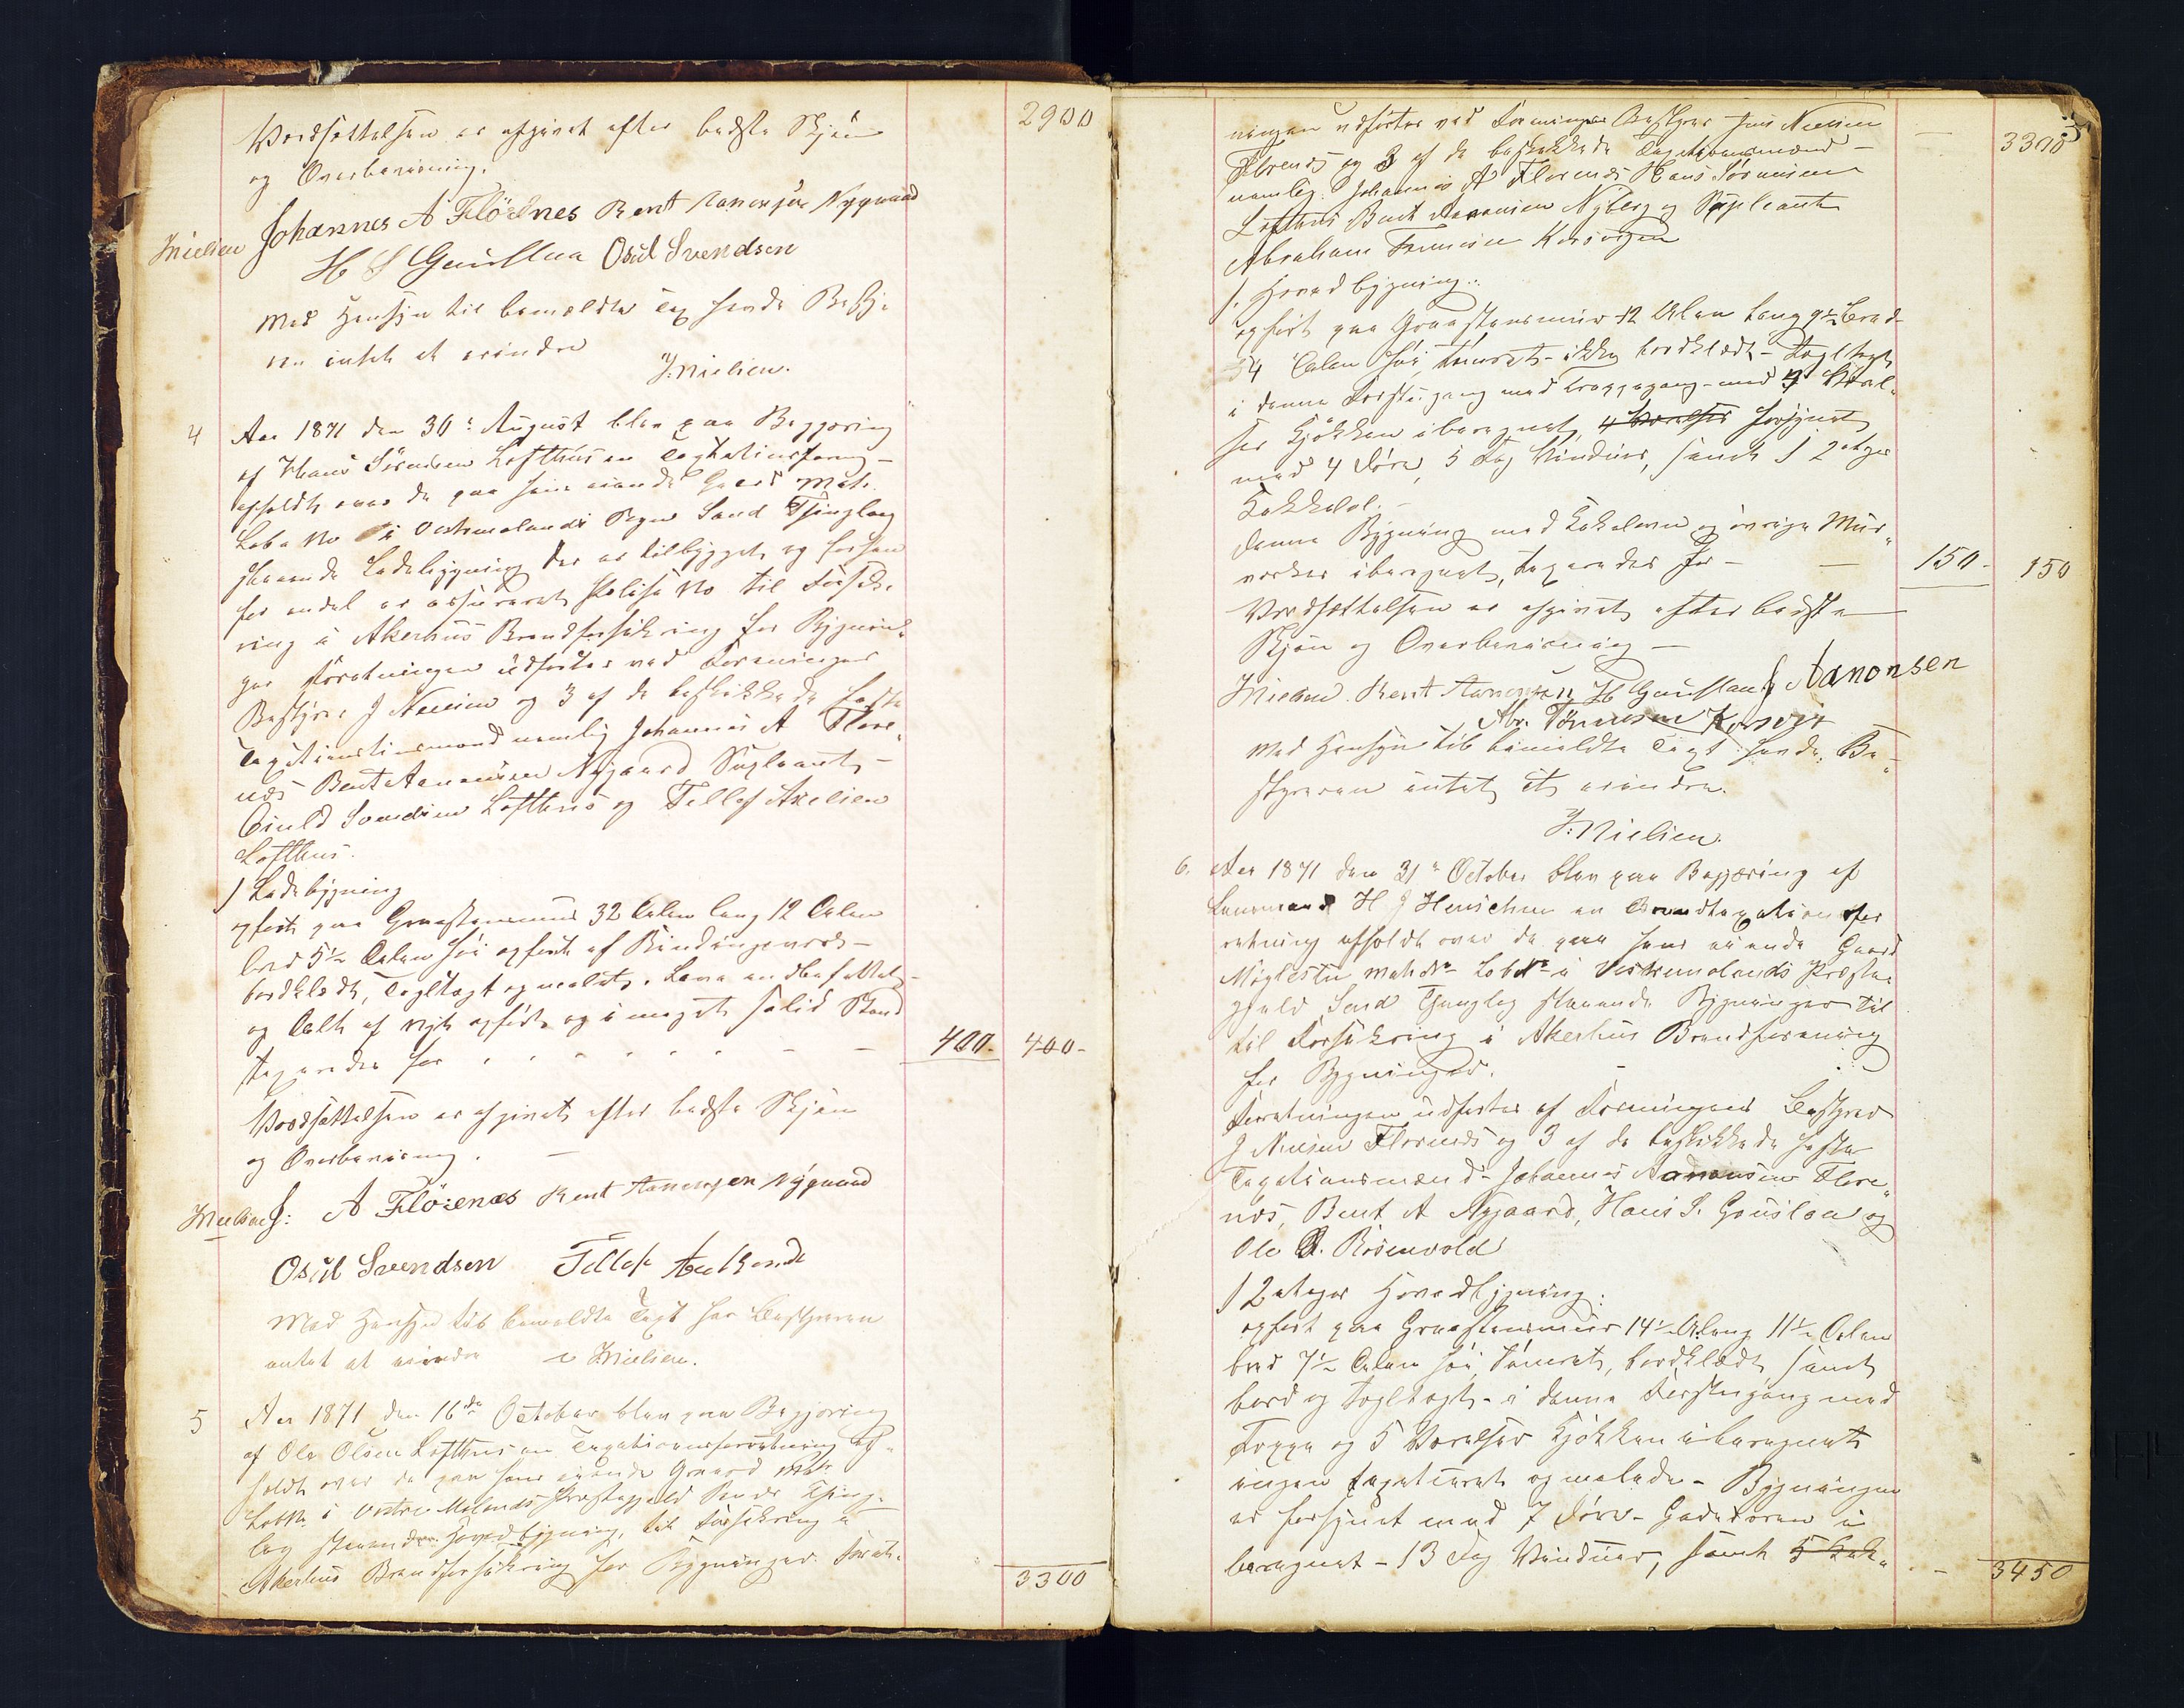 2900
Værdsættelsen er afgivet efter bedste Skjøn
og Overbeviisning.
JNielsen Johannes A Flörenes Bent Aanensen Nygaard
H S Gauslaa Osul Svendsen
Med Hensyn til bemældte Taxt havde Besty-
ren intet at erindre
J. Nielsen.
4 Aar 1871 den 30te August blev paa Begjæring
af Hans Sörensen Lofthus en Taxtationsforret-
afholdt over de paa hans eiende Gaard Matr.
Løbe No i Vestremolands Sogn Sand Thinglaug
staaende Ladebygning der er tilbygget og forhen
for endel er assureret Polise No til Forsik-
ring i Akerhus Brandforsikring for Bygnin-
ger Forretningen udførtes ved Foreningens
Bestyrer J Nielsen og 3 af de beskikkede faste
Taxtationsmænd nemlig Johannes A Flöre-
næs Bent Aanensen Nygaard Supleant
Osuld Svendsen Lofthus og Tellef Axelsen
Lofthus.
1 Ladebygning
opført paa Graastensmuur 32 Alen lang 12 Alen
bred 5½ Alen høi opført af Bindingsverk-
bordklædt, Tegltagt og malet. Laave
og Alt af nyt opført og i meget solid Stand
taxeredes for 400. 400-
Værdsættelsen er afgivet efter bedste Skjøn
og Overbeviisning.
JNielsen J: A Flörenæs Bent Aanensen Nygaard
Osul Svendsen Tellef
Med Hensyn til bemældte Taxt har Bestyreren
intet at erindre J Nielsen.
5 Aar 1871 den 16de October blev paa Begjæring
af Ole Olsen Lofthus en Taxationsforretning af-
holdt over de paa hans eiende Gaard Matr
Løb No i Vestre Molands Præstegjeld Sands Thing-
lag staaende Hovedbygning, til Forsikring i
Akerhus Brandforsikring for Bygninger. Forret-
3300
ningen udførtes ved Foreningens Bestyrer Jens Nielsen 3300
Flörenæs og 3 af de beskikkede Taxtationsmænd-
nemlig: Johannes A Florenæs Hans Sörensen
Lofthus Bent Aanensen Nyberg og Supleant
Abraham Tönnesen Korsvigen
1. Hovedbygning.
opført paa Graastensmuur 12 Alen lang 9½ bred-
54 Alen høi, tømret- ikke bordklædt- Tegltagt,
i denne Forstugang med Trappegang- med 3 Værel-
ser Kjøkken iberegnet, 4 Værelser forsynet
med 4 Døre, 5 Fag Vinduer, samt 1 2etages
Kakkelovn.
Denne Bygning med Kakelovn og øvrige Mur-
verker iberegnet, taxeredes for - 150- 150
Værdsættelsen er afgivet efter bedste
Skjøn og Overbeviisning -
JNielsen. Bent Aanensen H Gauslaa J Aanonsen
Abr. Tönnesen Korsvig
Med Hensyn til bemældte Taxt havde Be-
styreren intet at erindre.
J. Nielsen.
6. Aar 1871 den 31te October blev paa Begjæring af
Lensmand H J Henschen en Brandtaxationsfor
retning afholdt over de paa hans eiende Gaard
Möglestu matr No Løb No i Vestremolands Præste-
gjeld Sand Thinglag staaende Bygninger til
til Forsikring i Akerhus Brandforening
for Bygninger.
Forretningen udførtes af Foreningens Bestyrer
J Nielsen Florenæs og 3 af de beskikkede faste
Taxationsmænd- Johannes Aanonsen Flore-
næs, Bent A Nygaard, Hans S. Gauslaa og
Ole B. Rosenvold
1 2etages Hovedbygning:
opført paa Graastensmuur 14½ Al lang 11½ Alen
bred 7½ Alen høi, Tømret, bordklædt samt
bord og Tegltagt- i denne Forstugang med
Trappe og 5 Værelser Kjøkken iberegnet
ingen tapetseret og malede- Bygningen
er forsynet med 7 Døre- Gadedøren i
beregnet - 13 Fag Vinduer, samt 5 Kak-
3450